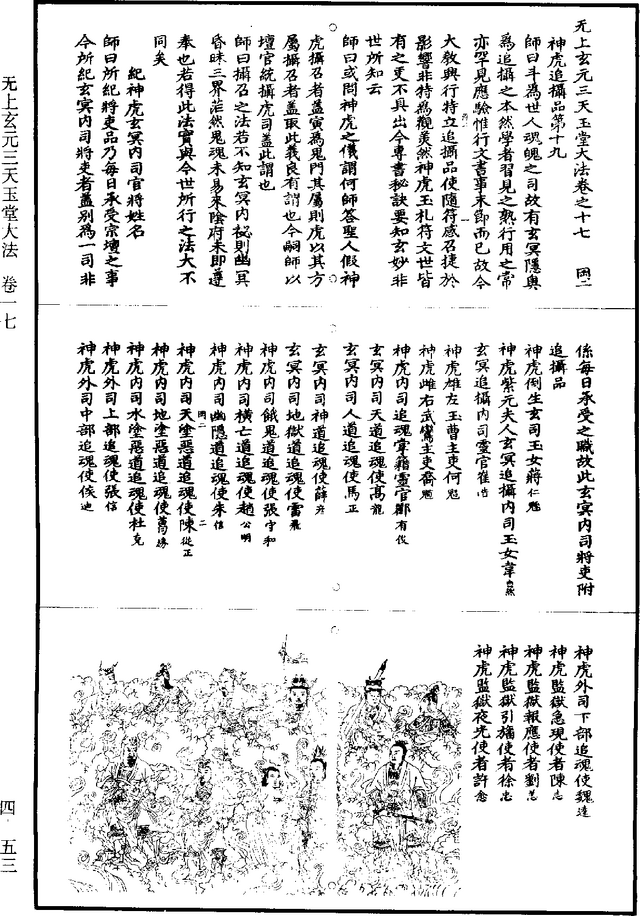 无上玄元三天玉堂大法 卷一七
四·五三
无上玄元三天玉堂大法卷之十七 岡二
神虎追攝品第十九
師曰斗為世人魂魄之司故有玄冥隱奧
為追攝之本然學者習見之熟行用之常
亦罕見應驗惟行文書事末節而已故今
大敎興行特立追攝品使隨符感召捷於
影響非特為觀美然神虎玉札符文世皆
有之更不具出今專書秘訣要知玄妙非
世所知云
師曰或問神虎之儀謂何師答聖人假神
虎攝召者蓋寅為鬼門其屬則虎以其方
屬攝召者蓋取此義良有謂也今嗣師以
壇官統攝虎司蓋此謂也
師曰攝召之法若不知玄冥內秘則幽冥
昏昧三界茫然鬼魂未易來陰府未即遵
奉也若得此法實與今世所行之法大不
同矣
紀神虎玄冥內司官將姓名
師曰所紀將吏品乃每日承受宗壇之事
今所紀玄冥內司將吏者蓋別為一司非
係每日承受之職故此玄冥內司將吏附
追攝品
神虎倒生玄司玉女將仁魁
神虎紫元夫人玄冥追攝內司玉女韋自然
玄冥追攝內司靈官崔浩
神虎雄左玉曹主吏何魁
神虎雌右武鸞主吏喬魁
神虎內司追魂掌籍靈官鄭有俊
玄冥內司天道追魂使高龍
玄冥內司人道追魂使馬正
玄冥內司神道追魂使薛
玄冥內司地獄道追魂使雷飛
神虎內司餓鬼道追魂使張守和
神虎內司橫亡道追魂使趙公明
神虎內司幽隱道追魂使朱信
岡二 二
神虎內司天塗惡道追魂使陳從正
神虎內司地塗惡道追魂使萬緣
神虎內司水塗惡道追魂使杜克
神虎外司上部追魂使張信
神虎外司中部追魂使侯迪
神虎外司下部追魂使魏達
神虎監獄急現使者陳志
神虎監獄報應使者劉
神虎監獄引旛使者徐忠
神虎監獄夜光使者許念